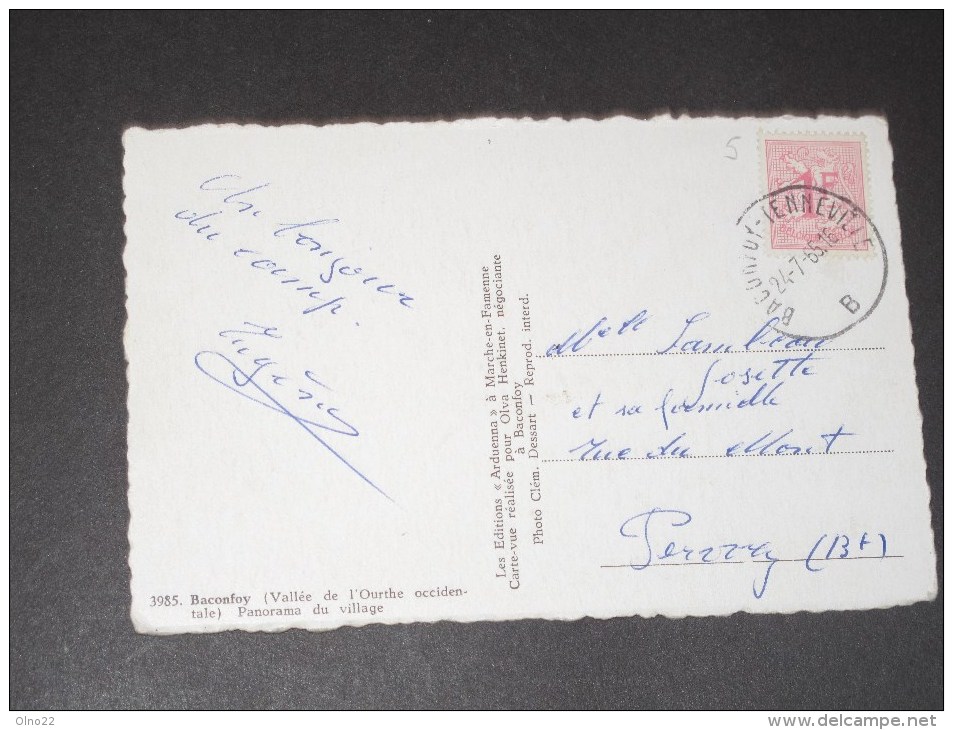 Un bonjour
du camp.
3985. Baconfoy (Vallée de l'Ourthe occiden-
tale) Panorama du village
Les Editions « Arduenna » à Marche-en-Famenne
Carte-vue réalisée pour Olva Henkinet. négociante
à Baconfoy
Photo Clém. Dessart — Reprod. interd.
5
1F
BACONFOY-TENNEVILLE
24-7-65.16
B
Melle Lambeau
Josette
et sa famille
rue du Mont
Perwez (Bt)
Olno22
www.delcampe.net